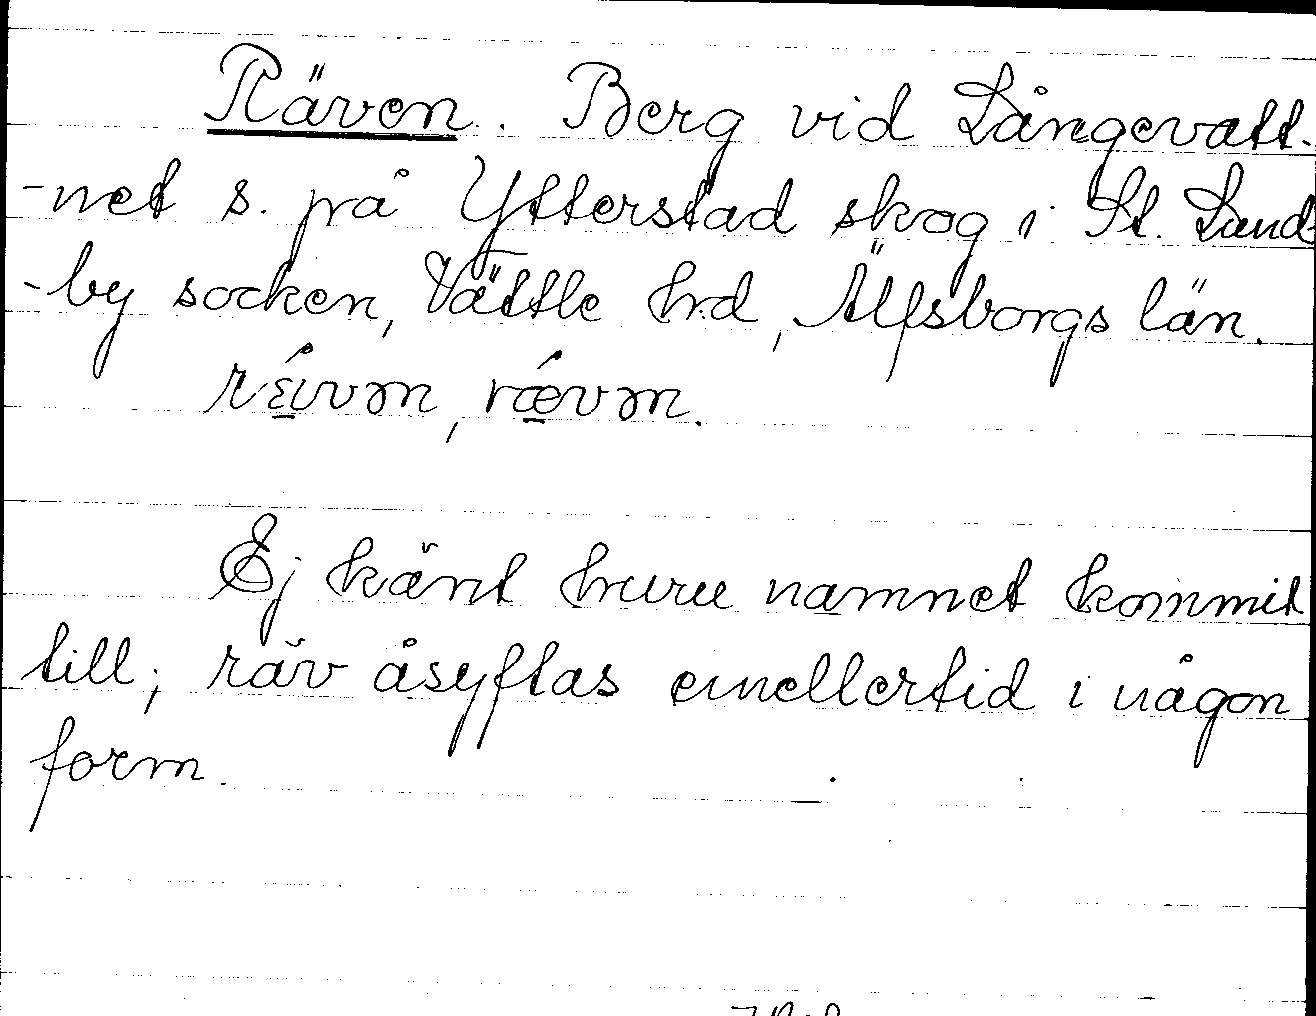 Räven. Berg vid Långevatt-
-net s. på Ytterstad skog i St. Lund
-by socken, Vättle hrd, Älfsborgs län.
Ej känt huru namnet kommit
till; räv åsyftas emellertid i någon
form.